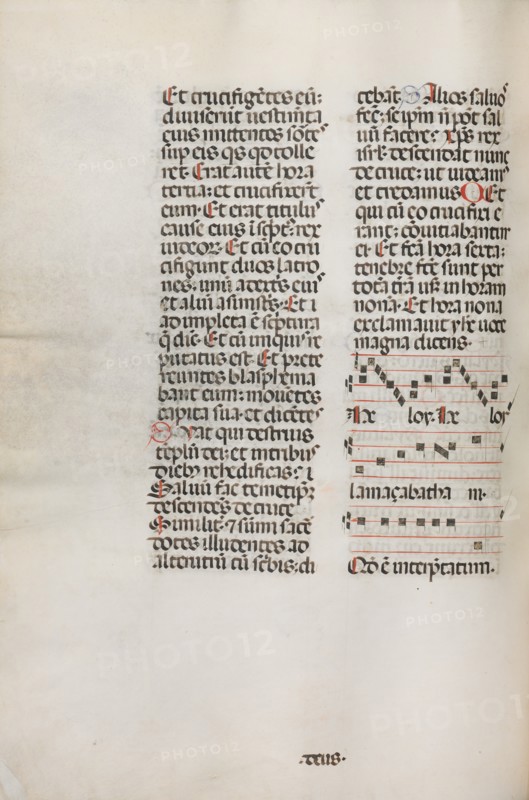 Et crucifigētes eū:
diuiserūt uestimēta
eius mittentes sorte
sup eis qs qd tolle
ret. Erat autē hora
tertia: et crucifixerūt
eum. Et erat titulus
cause eius īscptꝰ: rex
iudeoꝝ. Et cū eo cru
cifigunt duos latro
nes. unū a dextꝭ eius
et aliū a sinistꝭ. Et ī
adimpleta ē scptura
q̄ dic̄. Et cū iniquis re
putatus est. Et prete
reuntes blasphema
bant eum: mouētes
capita sua. et dicētes
Uat qui destruis
teplū dei: et intribus
diebꝫ rehedificas: ī
Saluū fac temetipꝫ
descendēs de cruce
Similit ⁊ sūmi sace
dotes illudentes ad
alterutrū cū scbis: di
cebāt. Alios saluos
fec̄: se ipm n̄ pōt sal
uū facere: xps rex
isrl descendat nunc
de cruce: ut uideamꝰ
et credamus. Et
qui cū eo crucifixi e
rant: cōuitiabantur
ei. Et fcā hora sexta:
tenebre fcē sunt per
totā trā usꝫ in horam
nonā. Et hora nona
exclamauit yhc uoce
magna dicens.
loy. loy
lamaçabatha ni.
Qd ē interptatum.
.deus.
PHOTO12